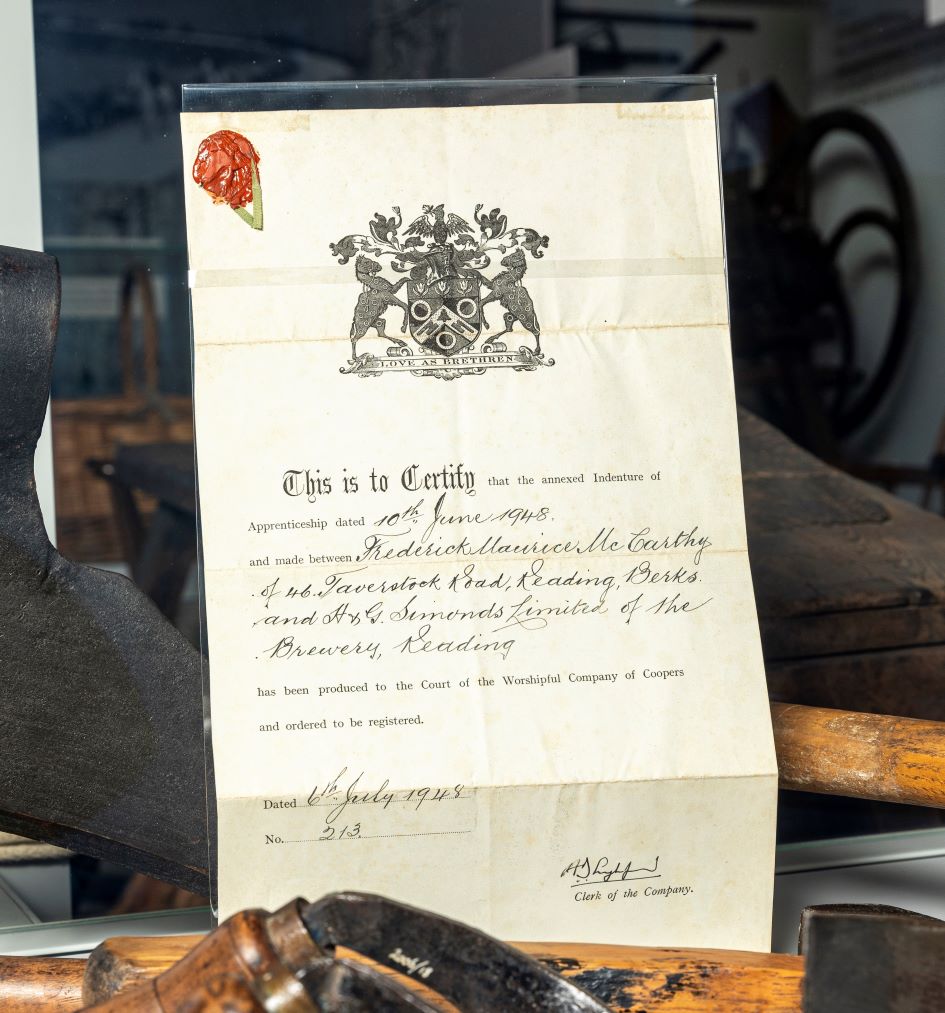 LOVE AS BRETHREN
This is to Certify that the annexed Indenture of
Apprenticeship dated 10th June 1948.
and made between Frederick Maurice McCarthy
of 46. Taverstock Road, Reading, Berks.
and H & G. Simonds Limited of the
Brewery, Reading
has been produced to the Court of the Worshipful Company of Coopers
and ordered to be registered.
Dated 6th July 1948
No. 213.
Clerk of the Company.